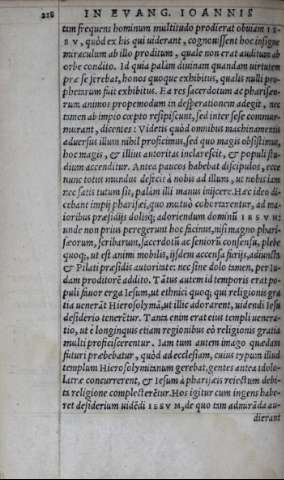 218 IN EVANG. IOANNIS
tim frequens hominum multitudo prodierat obuiam IE-
SV, quòd ex his qui uiderant, cognouissent hoc insigne
miraculum ab illo proditum, quale non erat auditum ab
orbe condito. Id quia palàm diuinam quandam uirtutem
præ se ferebat, honos quoque exhibitus, qualis nulli pro-
phetarum fuit exhibitus. Ea res sacerdotum ac pharisæo-
rum animos propemodum in desperationem adegit, nec
tamen ab impio cœpto resipiscunt, sed inter sese commur-
murant, dicentes: Videtis quòd omnibus machinamentis
aduersus illum nihil proficimus, sed quo magis obsistimus,
hoc magis, & illius autoritas inclarescit, & populi stu-
dium accenditur. Antea paucos habebat discipulos, ecce
nunc totus mundus desciscit à nobis ad illum, ac nobis iam
nec satis tutum sit, palàm illi manus inijcere. Hæc ideo di-
cebant impij pharisæi, quo mutuò cohortarentur, ad ma-
ioribus præsidijs dolisq; adoriendum dominũ IESVM:
unde non prius peregerunt hoc facinus, nisi magno phari-
sæorum, scribarum, sacerdotũ ac seniorũ consensu, plebe
quoq;, ut est animi mobilis, ijsdem accensa furijs, adiunctis
& Pilati præsidij autoritate: nec sine dolo tamen, per Iu-
dam proditorẽ addito. Tãtus autem id temporis erat po-
puli fauor erga Iesum, ut ethnici quoq; qui religionis gra
tia uenerãt Hierosolymã, ut illic adorarent, uidendi Iesu
desiderio tenerẽtur. Tanta enim erat eius templi ueneratio
tio, ut è longinquis etiam regionibus eò religionis gratia
multi proficiscerentur. Iam tum autem imago quædam
futuri præbebatur, quòd ad ecclesiam, cuius typum illud
templum Hierosolymitanum gerebat, gentes antea idolo-
latræ concurrerent, & Iesum à pharisæis reiectum debi-
ta religione complecterẽtur. Hos igitur cum ingens habe-
ret desiderium uidẽdi IESVM, de quo tam admirãda au-
dierant